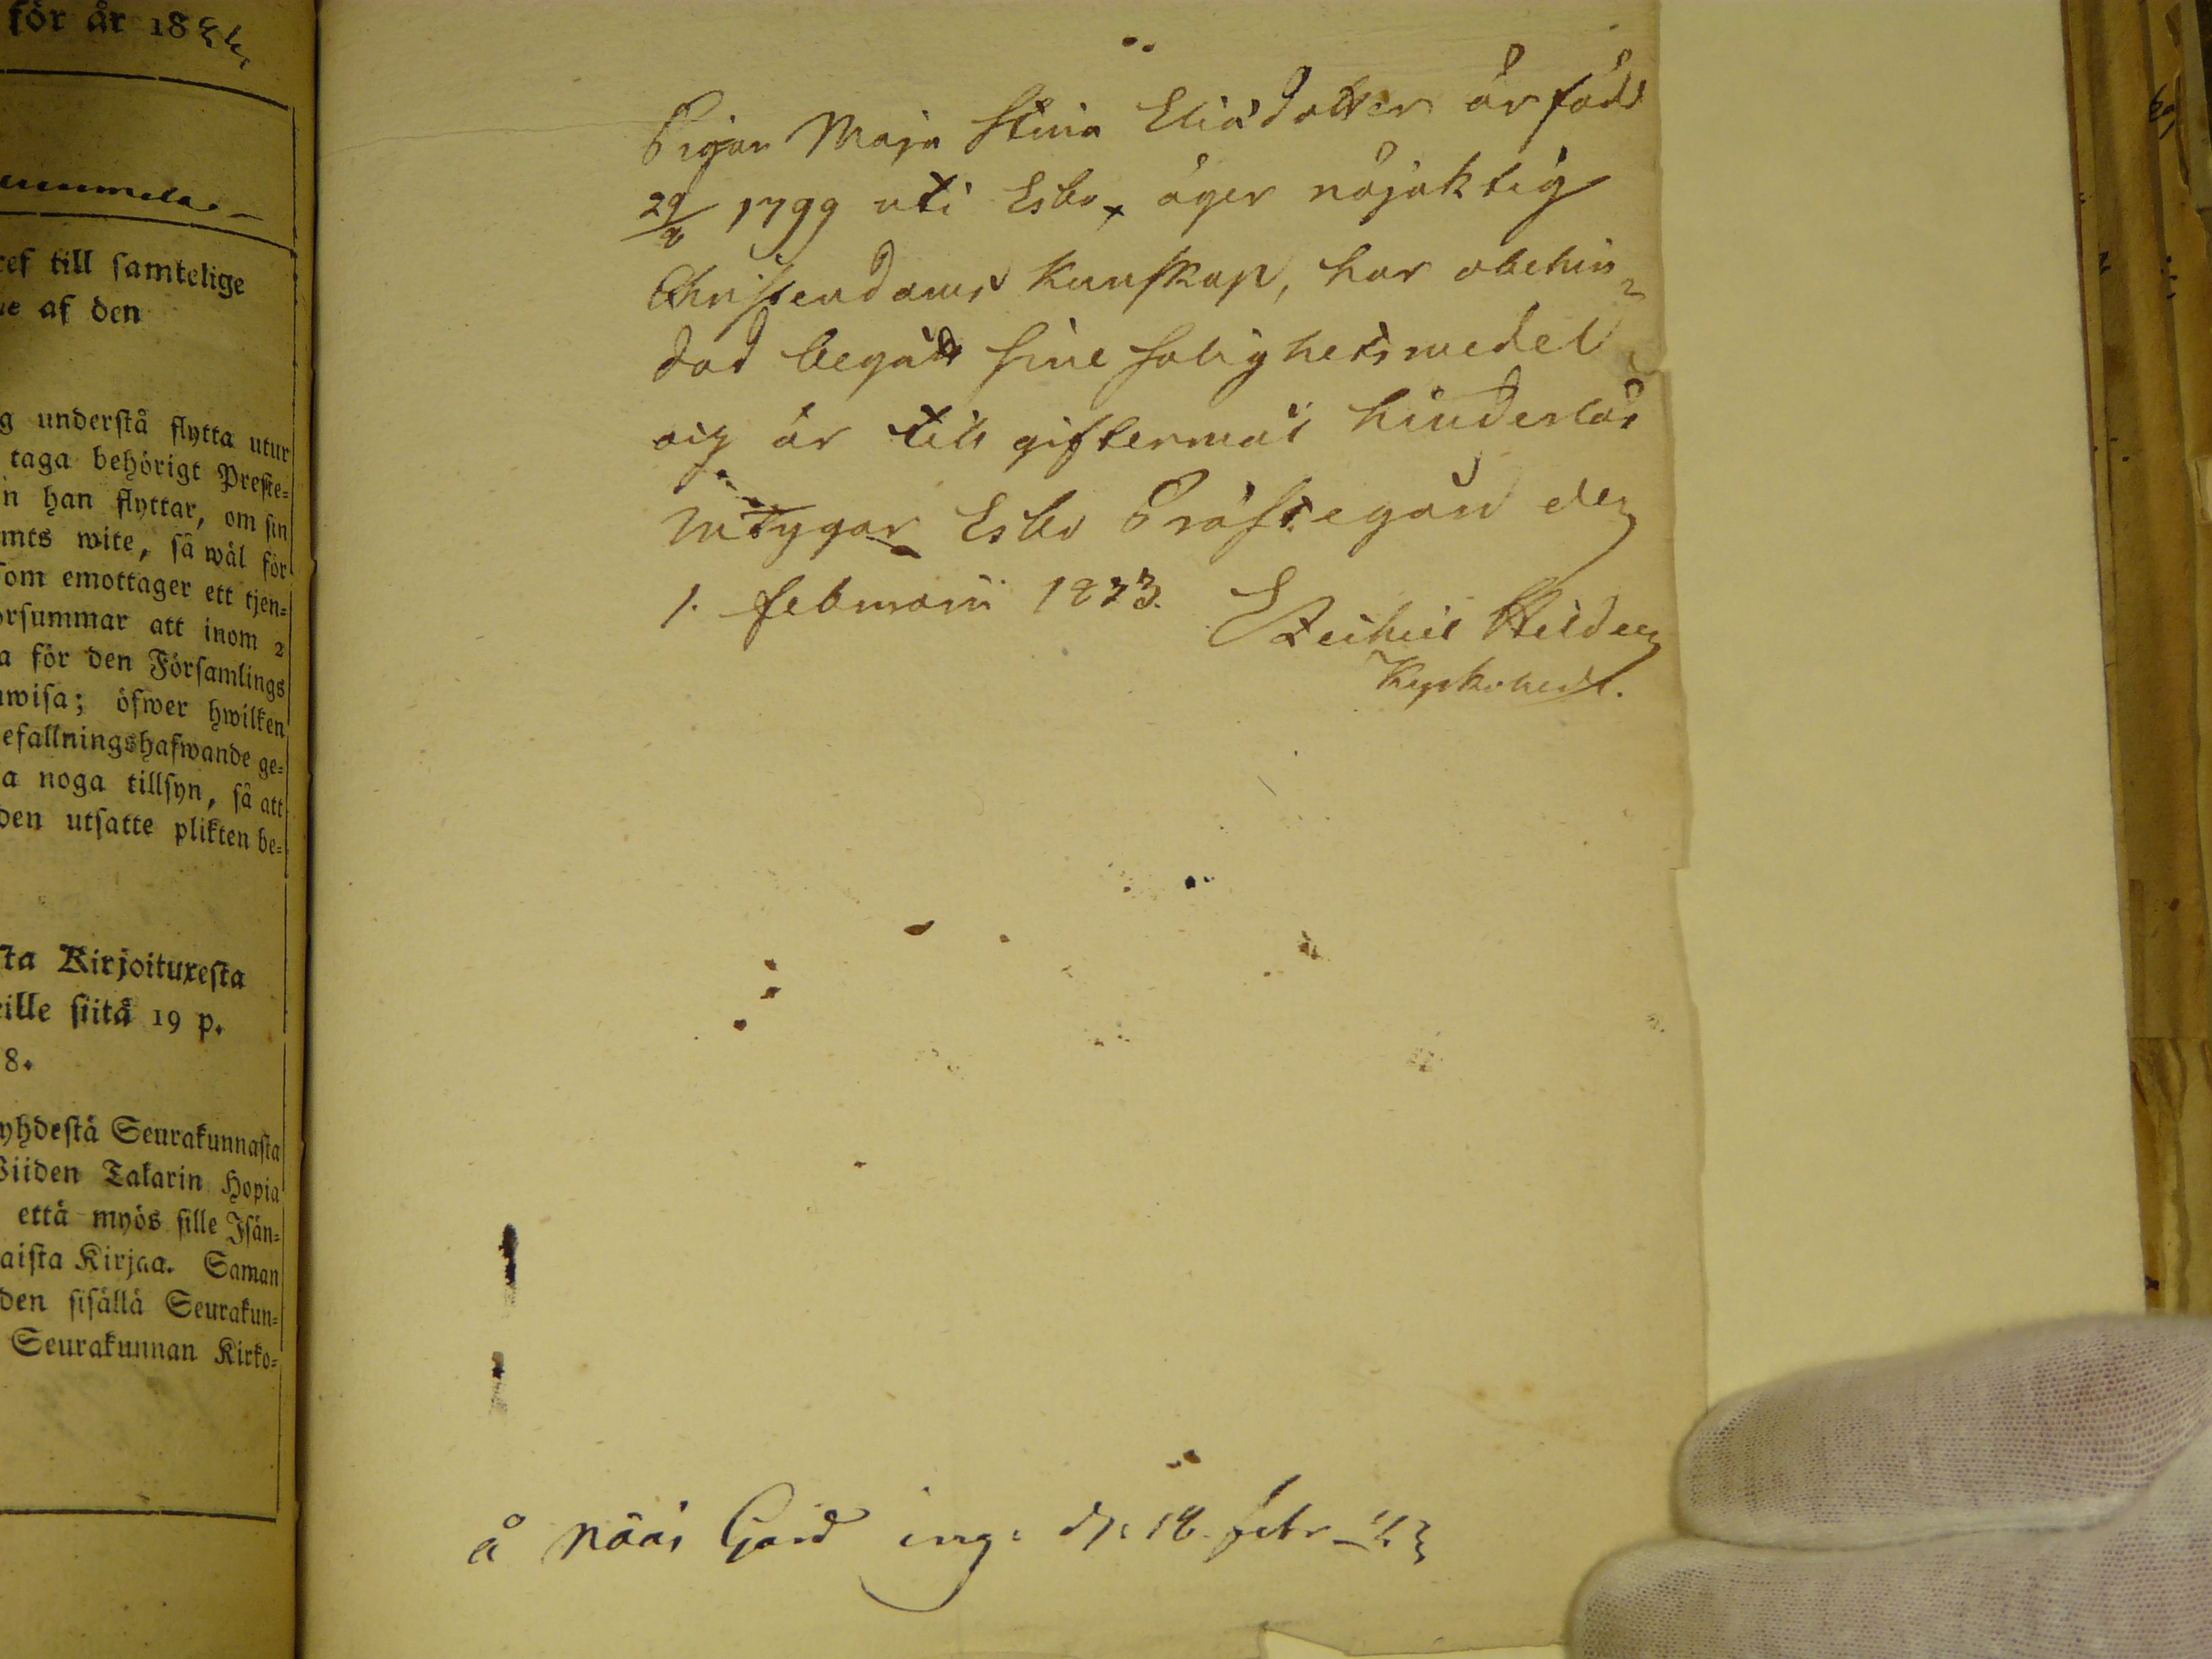 för år 18
ref till samtelige
ne af den
g understå flytta utur
taga behörigt Preste-
n han flyttar, om sin
mts wite, så wäl för
som emottager ett tjen-
orsummar att inom 2
a för den Församlings
wisa; öfwer hwilken
efallningshafwande ge-
a noga tillsyn, så att
den utsatte plikten be-
sta Kirjoituxesta
eille siitä 19 p.
8.
yhdestä Seurakunnasta
Wiiden Talarin Hopia
että myös sille Isän-
aista Kirjaa. Saman
den sisällä Seurakun-
Seurakunnan Kirko-
Pigan Maja Stina Eliædotter är född
29/8 1799 uti Esbo, äger nöjaktig
Christendoms kunskap, har obehin-
drad begått sine salighetsmedel
och är till giftermål hinderlös
intygar Esbo Prästegård den
1. februarii 1823.
Helden
Kyrkoherde.
å Nääs Gård ing: d. 18 febr 23